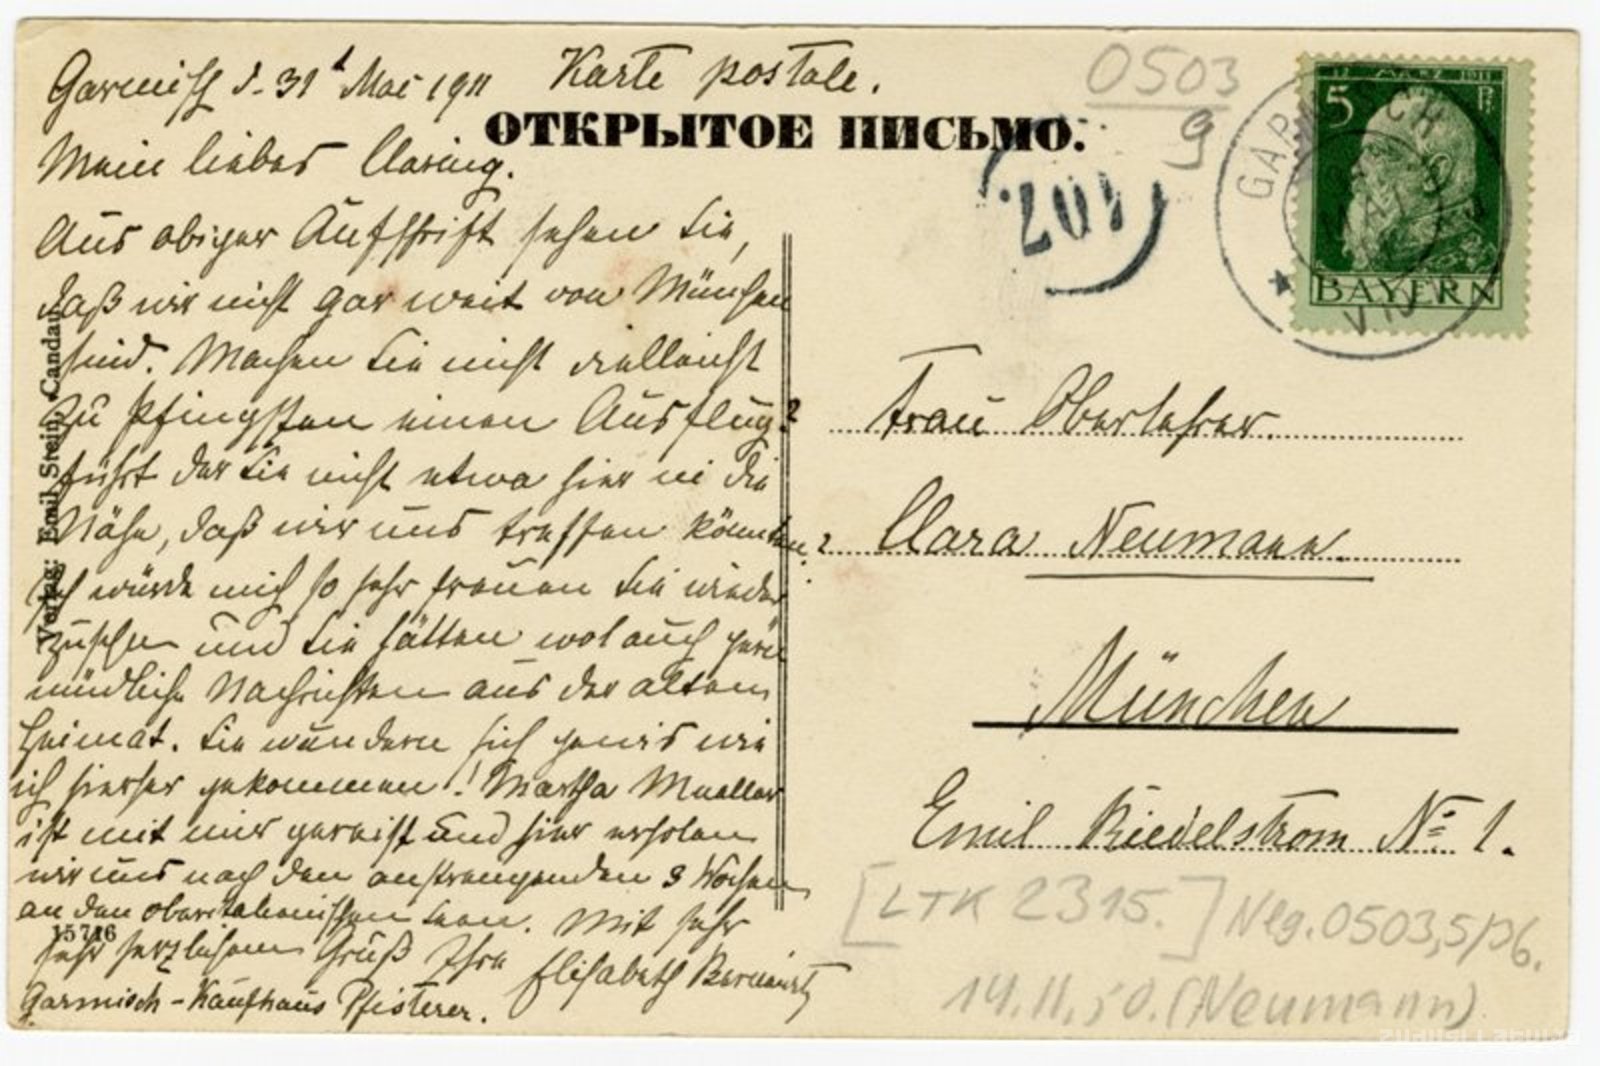 Garmisch d. 31t Mai 1911 Karte postale.
ОТКРЫТОЕ ПИСЬМО.
Mein liebes Claring.
Aus obiger Aufschrift sehen Sie,
daß wir nicht gar weit von München
sind. Machen Sie nicht vielleicht
zu Pfingsten einen Ausflug?
führt der Sie nicht etwa hier in die
Nähe, daß wir uns treffen könnten?
Ich würde mich so sehr freuen Sie wieder
zusehen und Sie hätten wol auch gern
mündliche Nachrichten aus der alten
Heimat. Sie wundern sich gewis wie
ich hierher gekommen! Martha Mueller
ist mit mir gereist und hier erholen
wir uns nach den anstrengenden 3 Wochen
an den oberitalienischen Seen. Mit sehr
sehr herzlichem Gruß Ihre Elisabeth
Garmisch - Kaufhaus Pfisterer.
Verlag: Emil Stein, Candau
15716
0503
9
201
GARMISCH
12. MÄRZ 1911
5 Pf
BAYERN
Frau Oberlehrer
Clara Neumann.
München
Emil Riedelstrom No 1.
[LTK 2315.] Neg. 0503,5/96.
14.11.50. (Neumann)